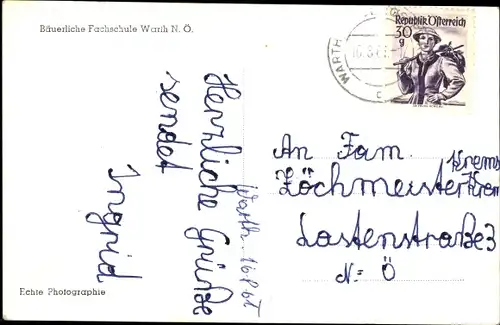 Bäuerliche Fachschule Warth N. Ö.
Herzliche Grüße
sendet
Ingrid
Warth, 16.8.65
Echte Photographie
WARTH
Republik Österreich
30
g
An Fam.
Krems
Löchmeister Krem
Lastenstraße 3
N. Ö